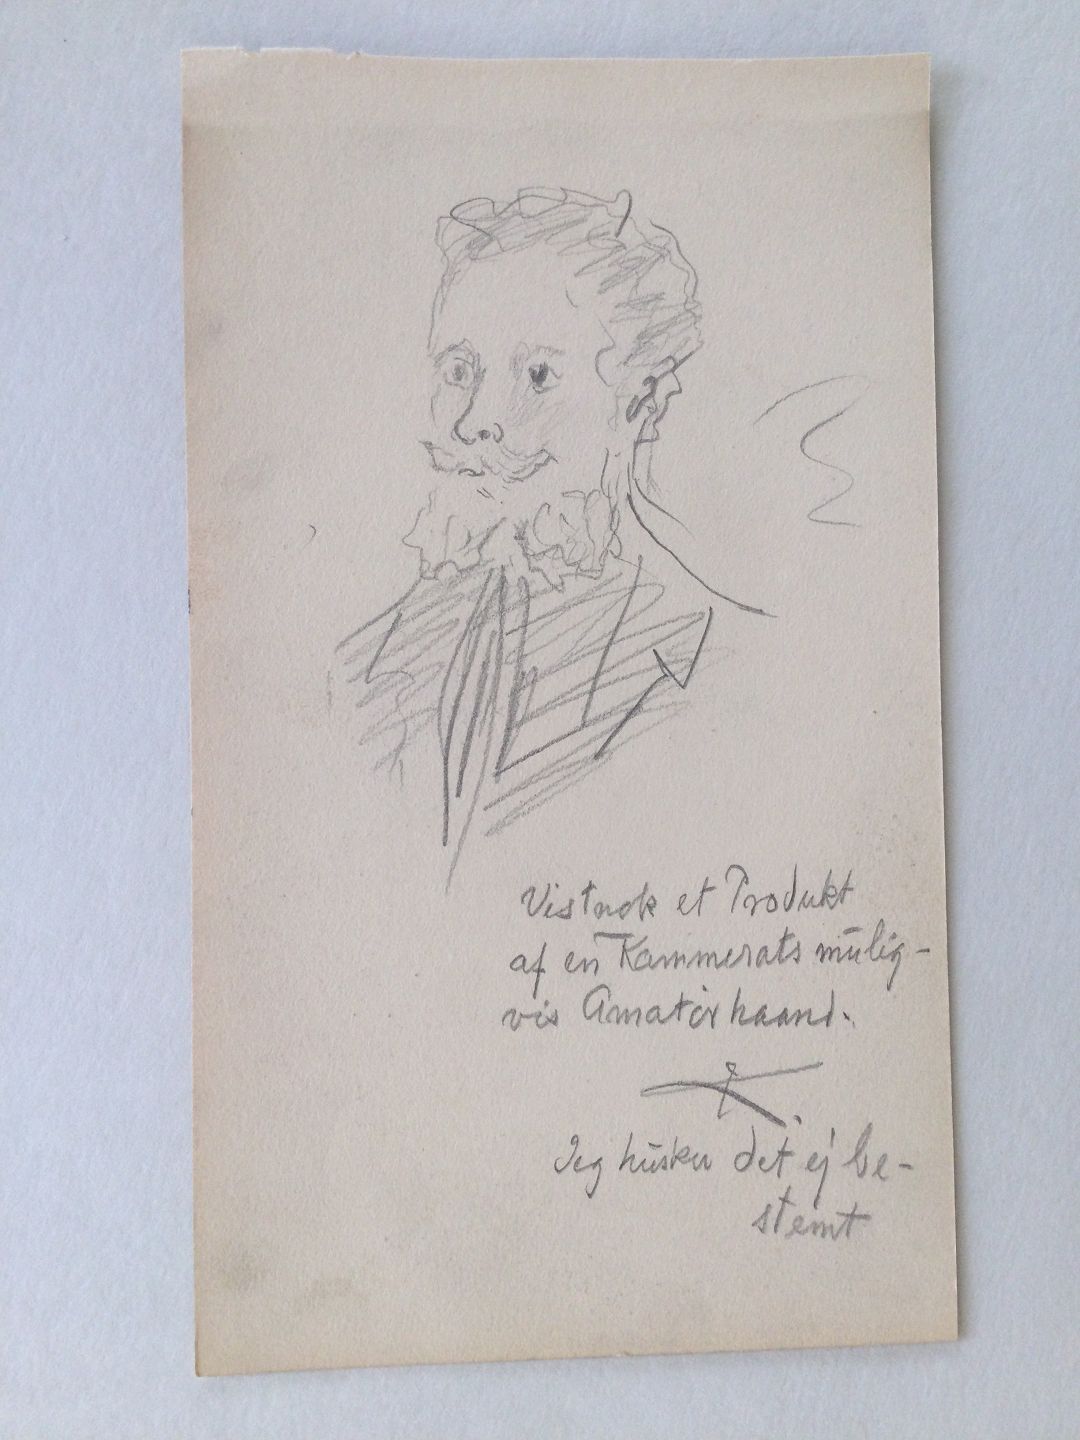 Vistnok et Produkt
af en Kammerats mulig-
vis Amatørhaand.
Jeg husker det ej be-
stemt